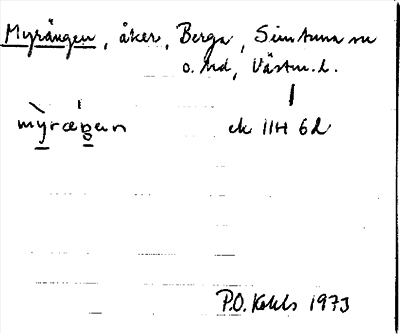 Myrängen, åker, Berga, Simtuna sn
o. hd, Västm. l.
ek 11H 6d
P.O. Kohls 1973